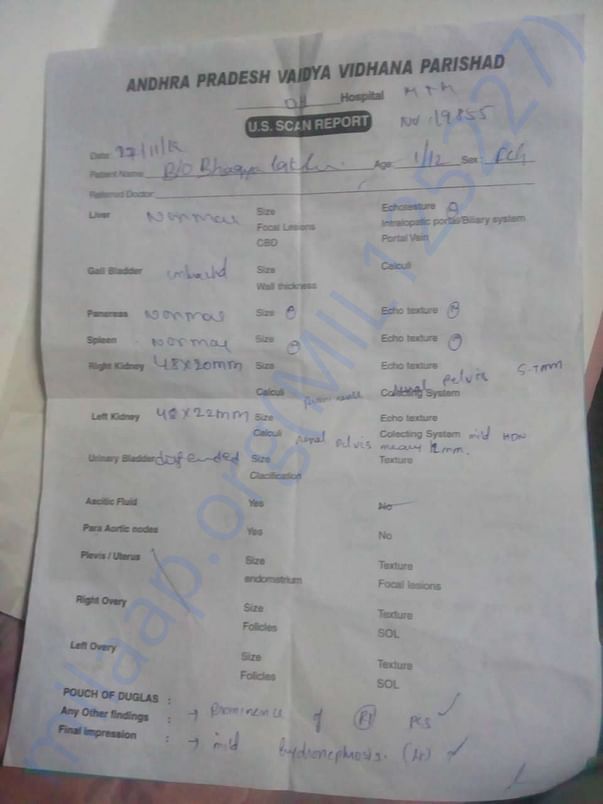 ANDHRA PRADESH VAIDYA VIDHANA PARISHAD
DH Hospital MTM
U.S. SCAN REPORT No: 19855
Date: 27/11/
Patient Name: B/O Bhagya Age: 1/12 Sex: Fch
Referred Doctor:
Liver Normal Size Echotexture
Focal Lesions Intralopatic portal/Biliary system
CBD Portal Vain
Gall Bladder Size Calculi
Wall thickness
Pancreas Normal Size Echo texture
Spleen Normal Size Echo texture
Right Kidney 48x20mm Size Echo texture
Calculi Colecting System renal pelvis 5-7mm
Left Kidney 48x22mm Size Echo texture
Calculi renal pelvis Colecting System mild HDN
Urinary Bladder distended Size Texture
Clacification
Ascitic Fluid Yes No
Para Aortic nodes Yes No
Plevis / Uterus Size Texture
endometrium Focal lesions
Right Overy Size Texture
Folicles SOL
Left Overy Size Texture
Folicles SOL
POUCH OF DUGLAS :
Any Other findings : → Prominence of Rt PCS
Final Impression : → mild hydronephrosis. (Lt)
milaap.org(MIL125227)